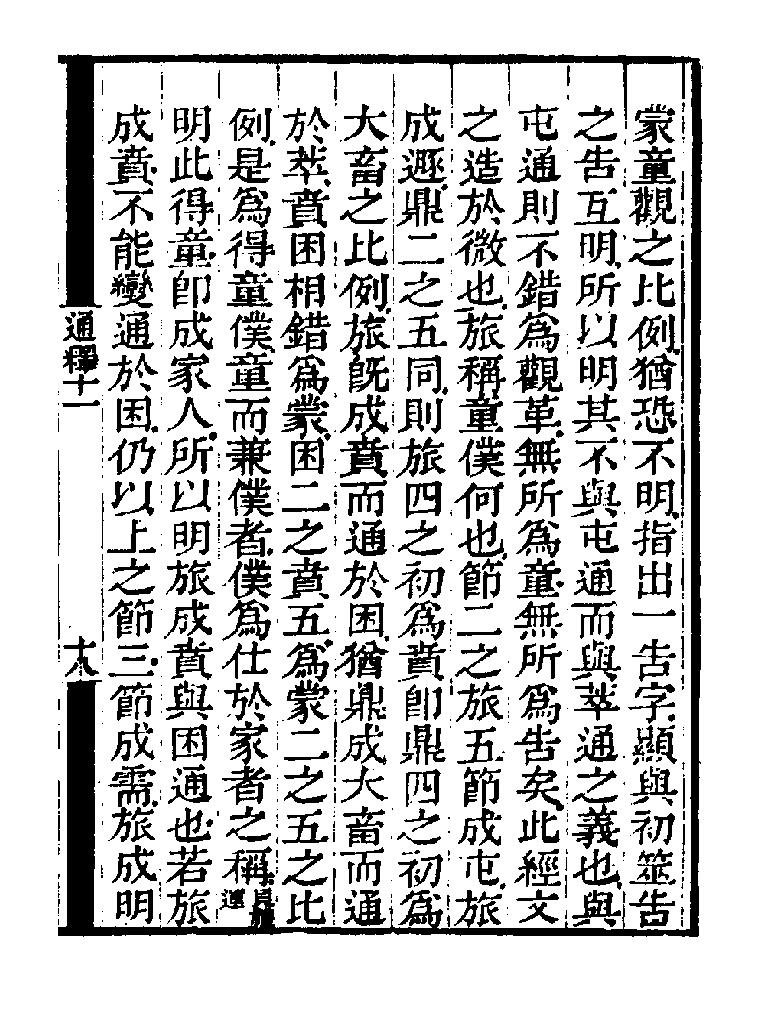 蒙童觀之比例猶恐不明指出一告字顯與初筮告
之告互明所以明其不與屯通而與萃通之義也與
屯通則不錯爲觀革無所爲童無所爲告矣此經文
之造於微也旅稱童僕何也節二之旅五節成屯旅
成遯鼎二之五同則旅四之初爲賁卽鼎四之初爲
大畜之比例旅旣成賁而通於困猶鼎成大畜而通
於萃賁困相錯爲蒙困二之賁五爲蒙二之五之比
例是爲得童僕童而兼僕者僕爲仕於家者之稱
明此得童卽成家人所以明旅成賁與困通也若旅
成賁不能變通於困仍以上之節三節成需旅成明
通釋十一
十八